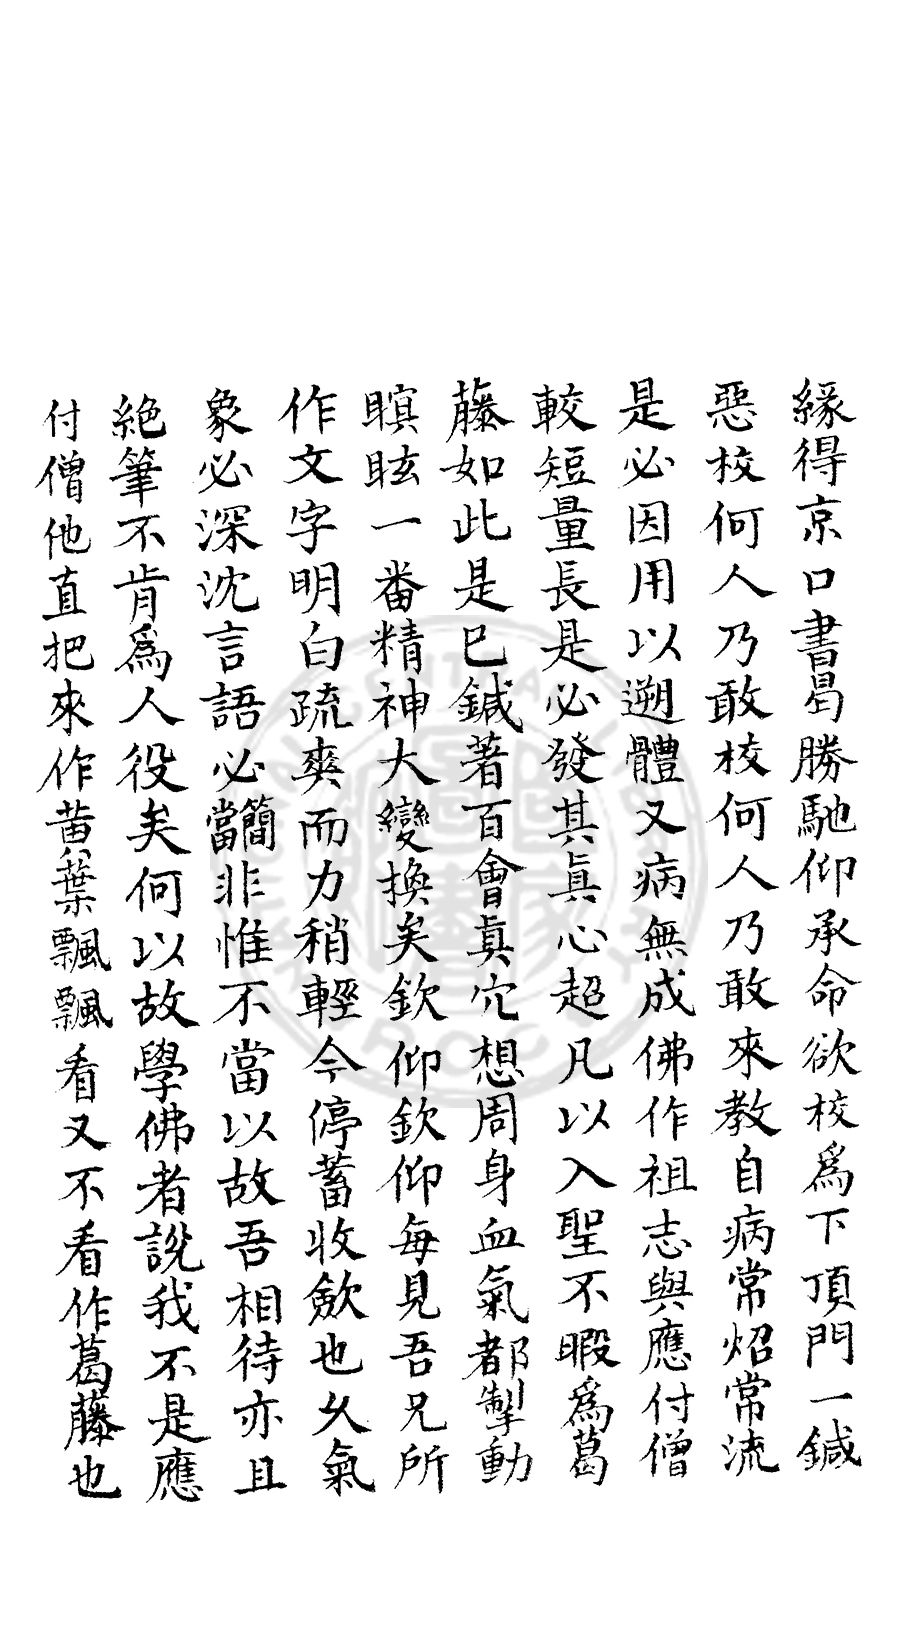 緣得京口書曷勝馳仰承命欲校為下頂門一鍼
惡校何人乃敢校何人乃敢來教自病常炤常流
是必因用以遡體又病無成佛作祖志與應付僧
較短量長是必發其真心超凡以入聖不暇為葛
藤如此是巳鍼著百會真穴想周身血氣都掣動
瞑眩一番精神大變換矣欽仰欽仰每見吾兄所
作文字明白疏爽而力稍輕今停蓄收歛也久氣
象必深沈言語必簡當非惟不當以故吾相待亦且
絕筆不肯為人役矣何以故學佛者說我不是應
付僧他直把來作黃葉飄飄看又不看作葛藤也